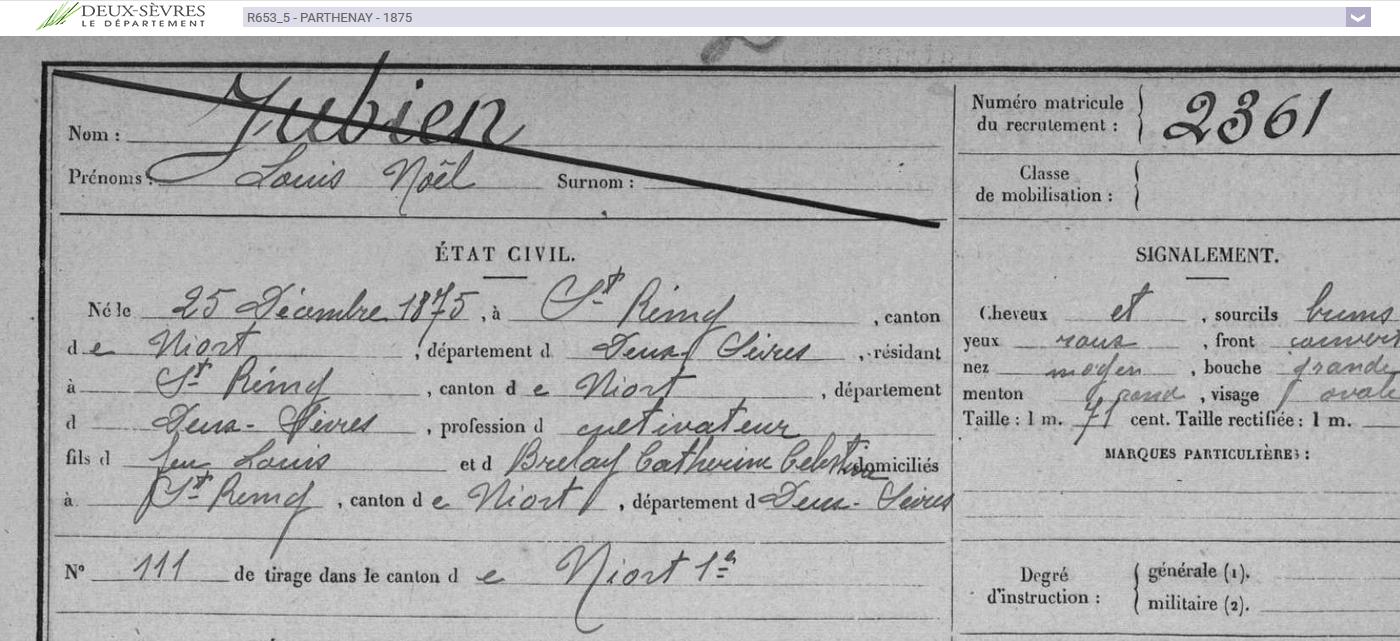 DEUX-SÈVRES
LE DÉPARTEMENT
R653_5 - PARTHENAY - 1875
Nom : Jubien
Prénoms : Louis Noël Surnom :
Numéro matricule du recrutement : 2361
Classe de mobilisation :
ÉTAT CIVIL.
Né le 25 Décembre 1875, à St Rémy, canton
de Niort, département d Deux Sèvres, résidant
à St Rémy, canton de Niort, département
d Deux-Sèvres, profession d cultivateur
fils d feu Louis et d Brelay Catherine Celestine domiciliés
à St Remy, canton de Niort, département d Deux-Sèvres
N° 111 de tirage dans le canton de Niort 1er
SIGNALEMENT.
Cheveux et, sourcils bruns
yeux roux, front couvert
nez moyen, bouche grande
menton rond, visage ovale
Taille : 1 m. 71 cent. Taille rectifiée : 1 m.
MARQUES PARTICULIÈRES :
Degré d'instruction : générale (1).
militaire (2).